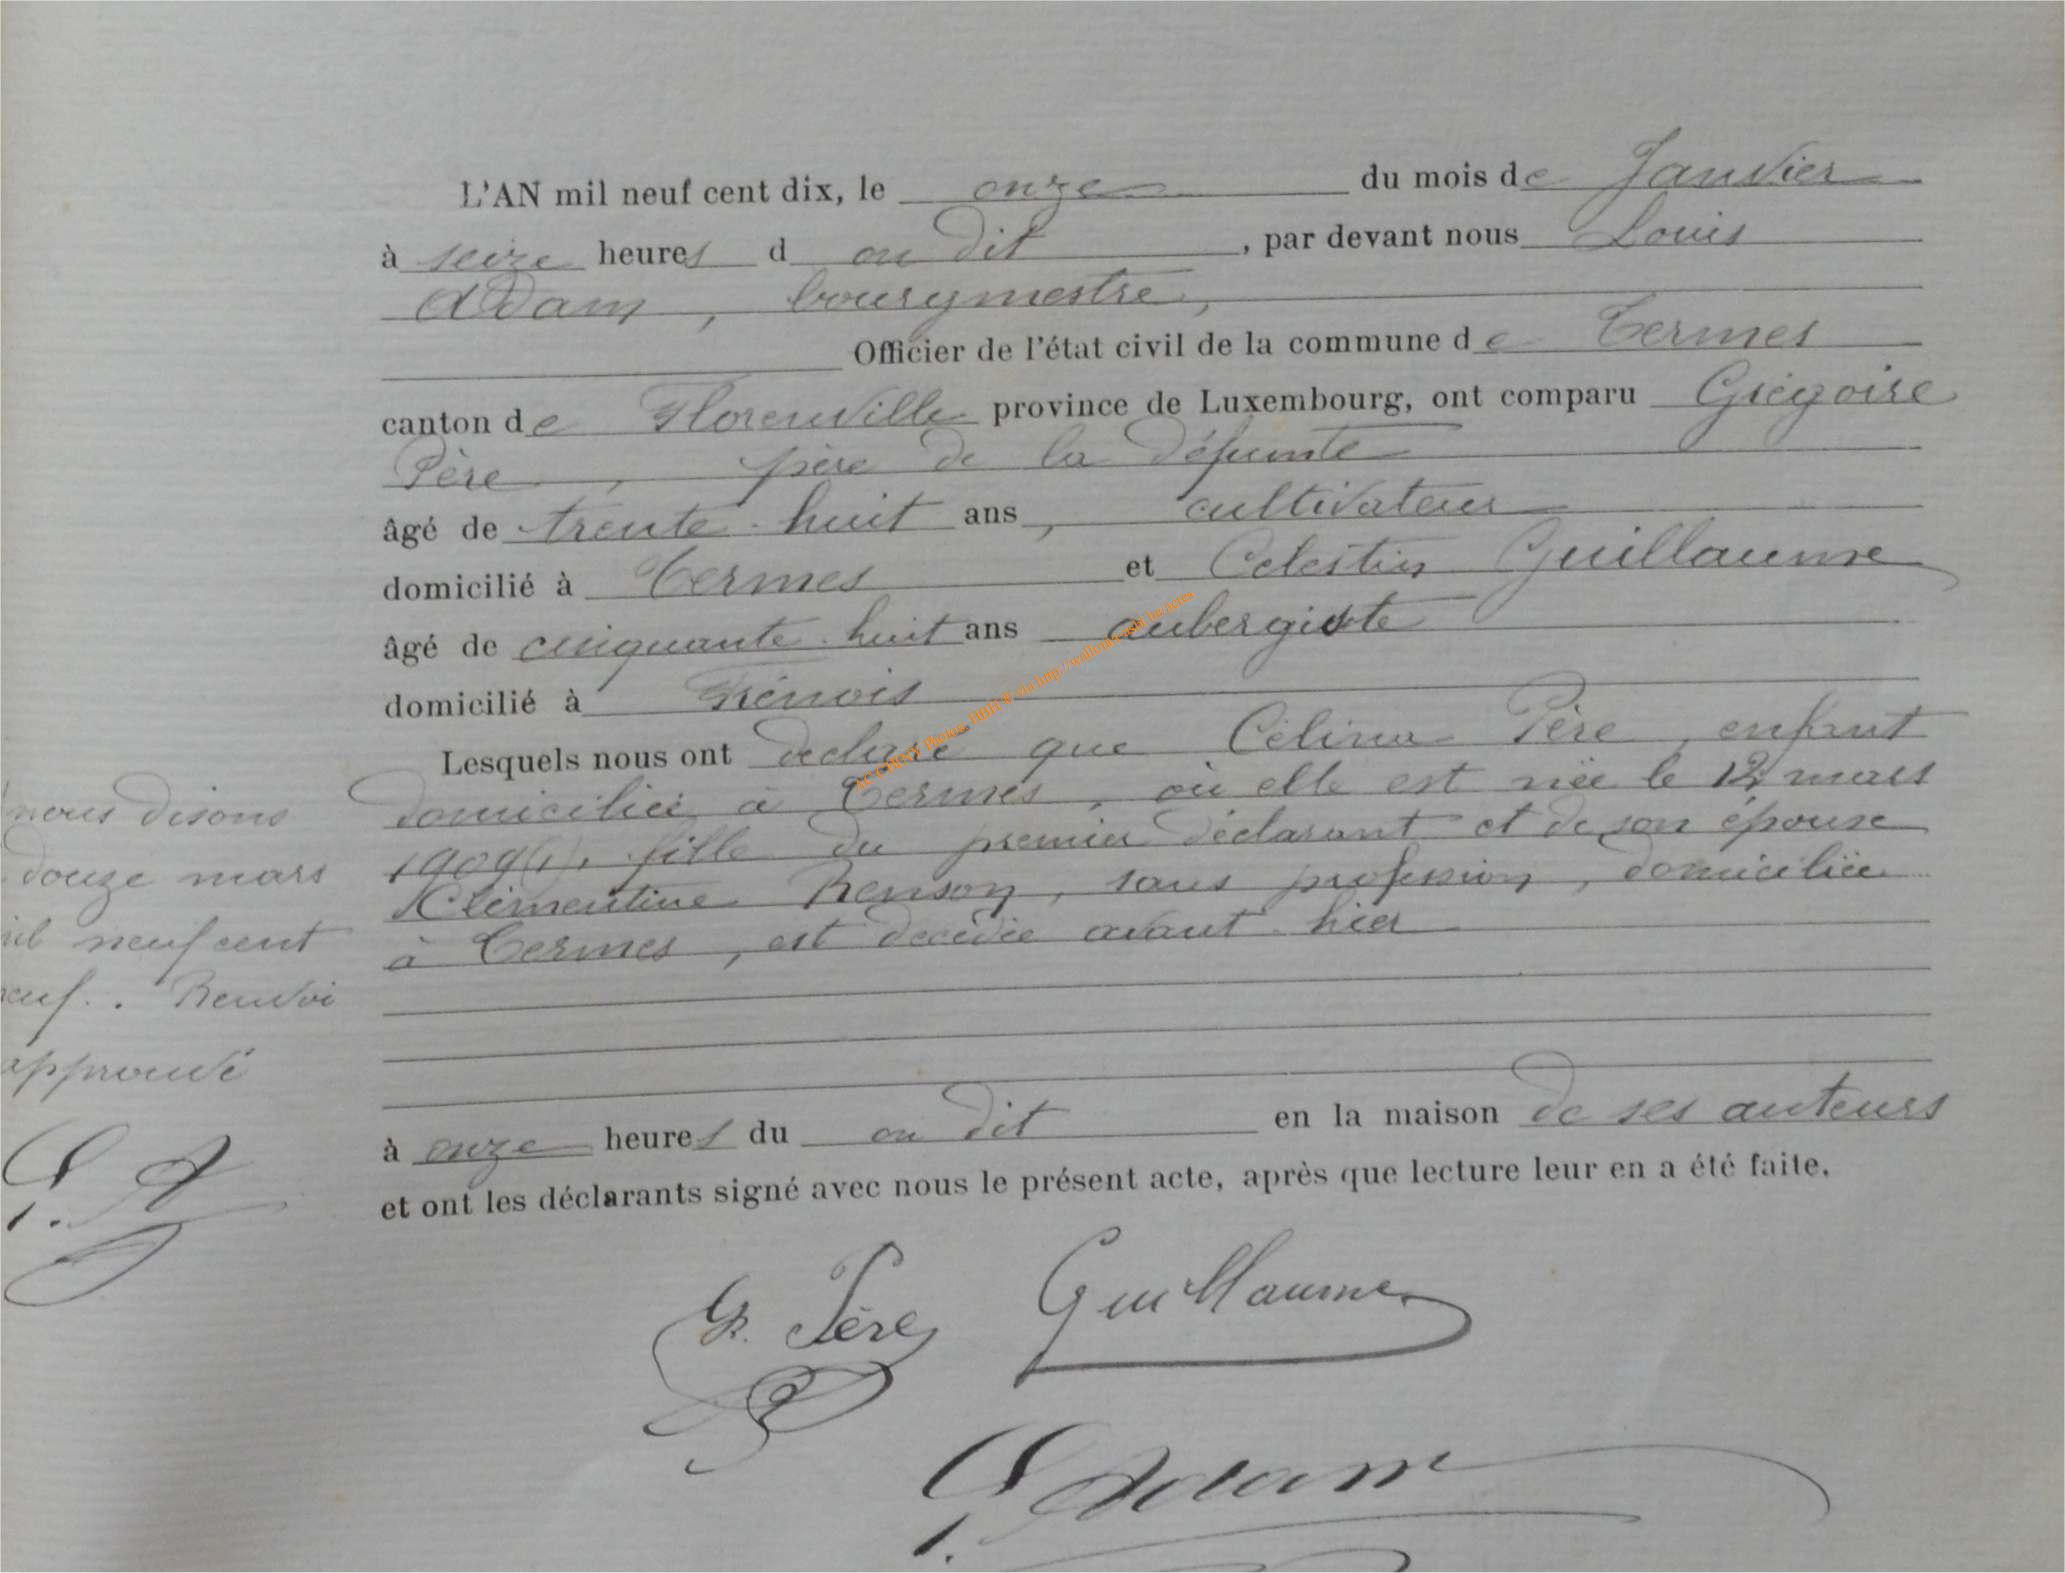 L'AN mil neuf cent dix, le onze du mois de Janvier
à seize heures d on dit, par devant nous Louis
Adam, bourgmestre,
Officier de l'état civil de la commune de Termes
canton de Florenville province de Luxembourg, ont comparu Grégoire
Père, père de la défunte
âgé de trente-huit ans, cultivateur
domicilié à Termes et Célestin Guillaume
âgé de cinquante-huit ans aubergiste
domicilié à Frénois
Lesquels nous ont déclaré que Célina Père, enfant
domiciliée à Termes, où elle est née le 12 mars
1909 (1), fille du premier déclarant et de son épouse
Clémentine Renson, sans profession, domiciliée
à Termes, est décédée avant-hier
à onze heures du on dit en la maison de ses auteurs
et ont les déclarants signé avec nous le présent acte, après que lecture leur en a été faite.
nous disons
douze mars
mil neuf cent
neuf. Renvoi
approuvé
L. A
G. Père Guillaume
L. Adam